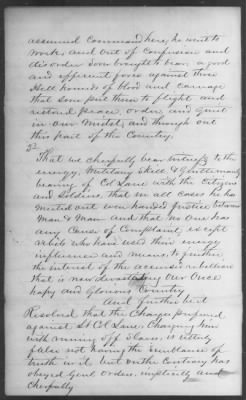 assumed command here, he went to
works and out of Confusion and
disorder soon brought to bear, a good
and efficient force against those
Hell hounds of blood and Carnage
that soon put them to flight and
restored peace, order and quiet
in our Midst, and through out
this part of the Country.
2d
That we cheerfully bear witness to the
energy, Military Skill & Gentlemanly
bearing of Col Lane with the Citizens
and Soldiers, that in all cases he has
meted out even handed justice between
Man & Man and that no One has
any Cause of Complaint, except
those who have used their energy
influence and means, to further
the interest of the accursed rebellion
that is now devastating Our Once
happy and Glorious Country
And further be it
Resolved that the Charges preferred
against Lt Col Lane, Charging him
with running off slaves, is utterly
false not having the semblance of
truth in it but on the Contrary has
obeyed Genl orders, implicitly and
cheerfully